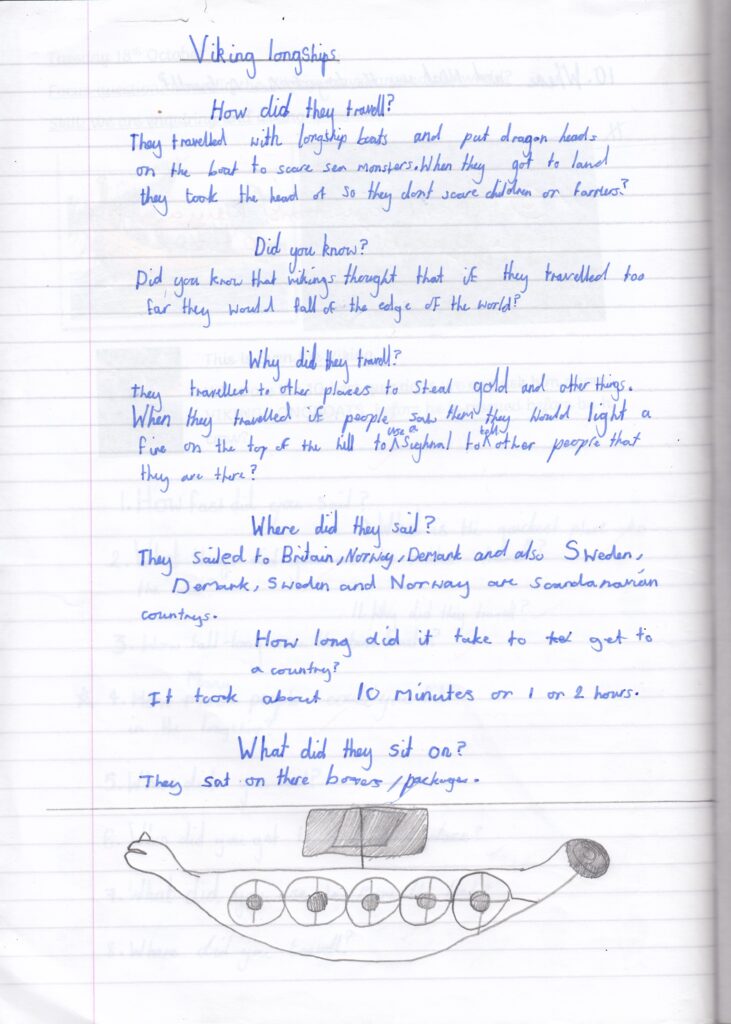 Viking longships
How did they travell?
They travelled with longship boats and put dragon heads
on the boat to scare sea monsters. When they got to land
they took the head of so they dont scare children or farriers?
Did you know?
Did you know that vikings thought that if they travelled too
far they would fall of the edge of the world?
Why did they travell?
they travelled to other places to steal gold and other things.
When they travelled if people saw them they would light a
fire on the top of the hill to use a sighnal to tell other people that
they are there?
Where did they sail?
They sailed to Britain, Norway, Demark and also Sweden,
Demark, Sweden and Norway are scandanavian
countrys.
How long did it take to get to
a country?
It took about 10 minutes or 1 or 2 hours.
What did they sit on?
They sat on there boxes/packages.